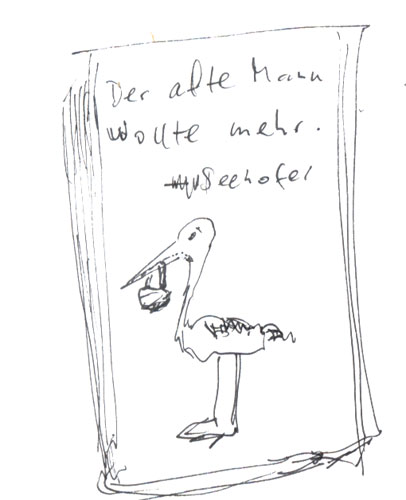 Der alte Mann
wollte mehr.
Seehofer